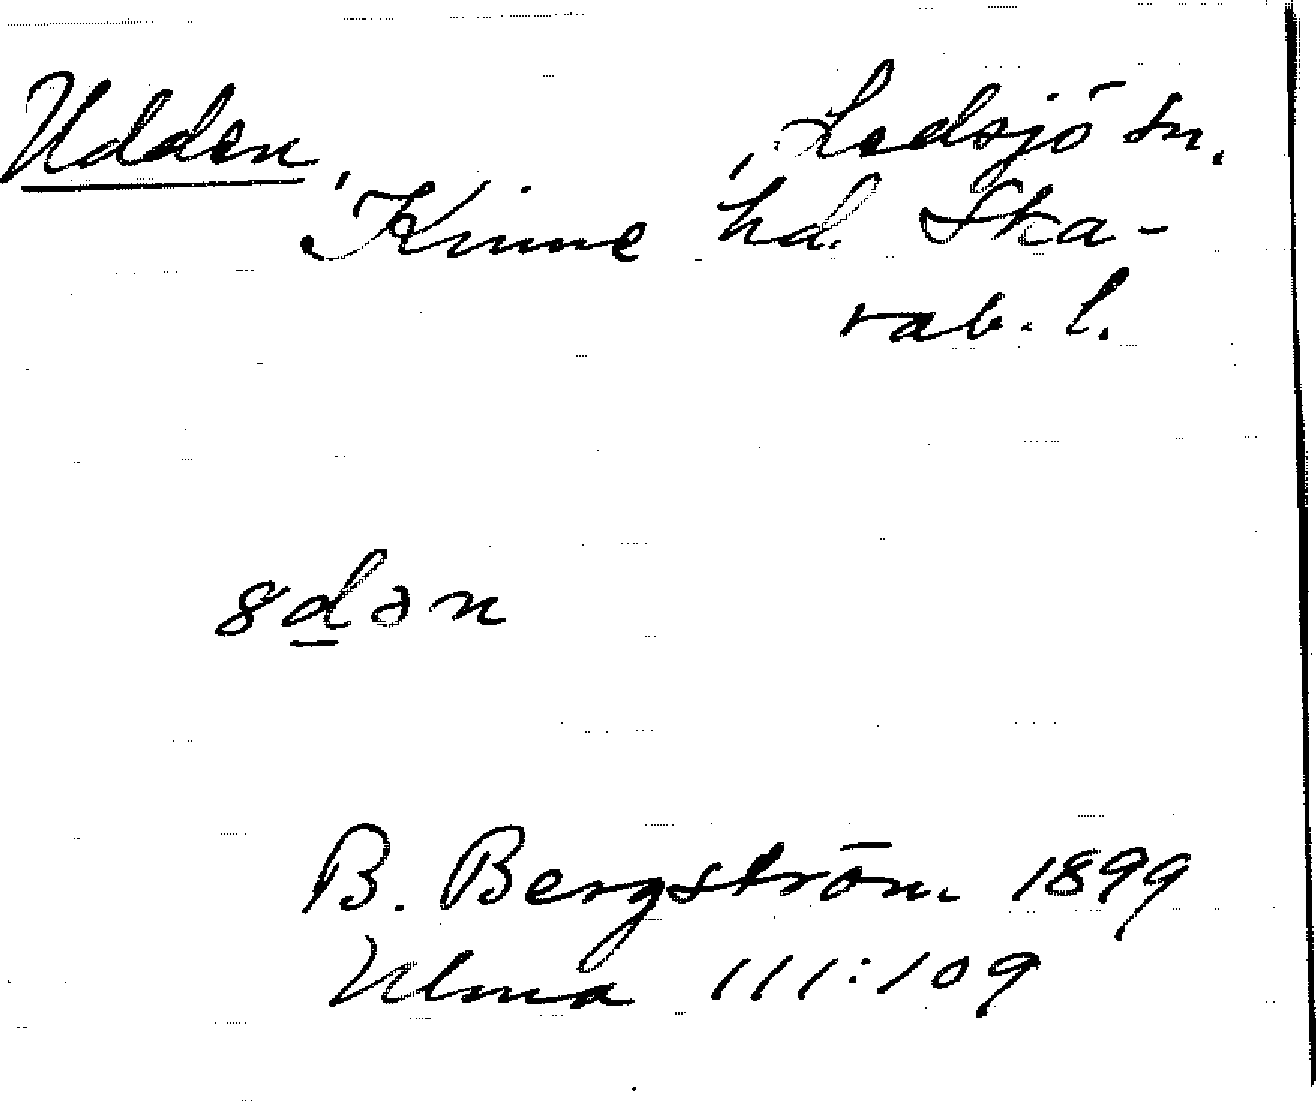 Udden, Ledsjö sn,
Kinne hd. Ska-
rab. l.
8d̲ən
B. Bergström 1899
Ulma 111:109